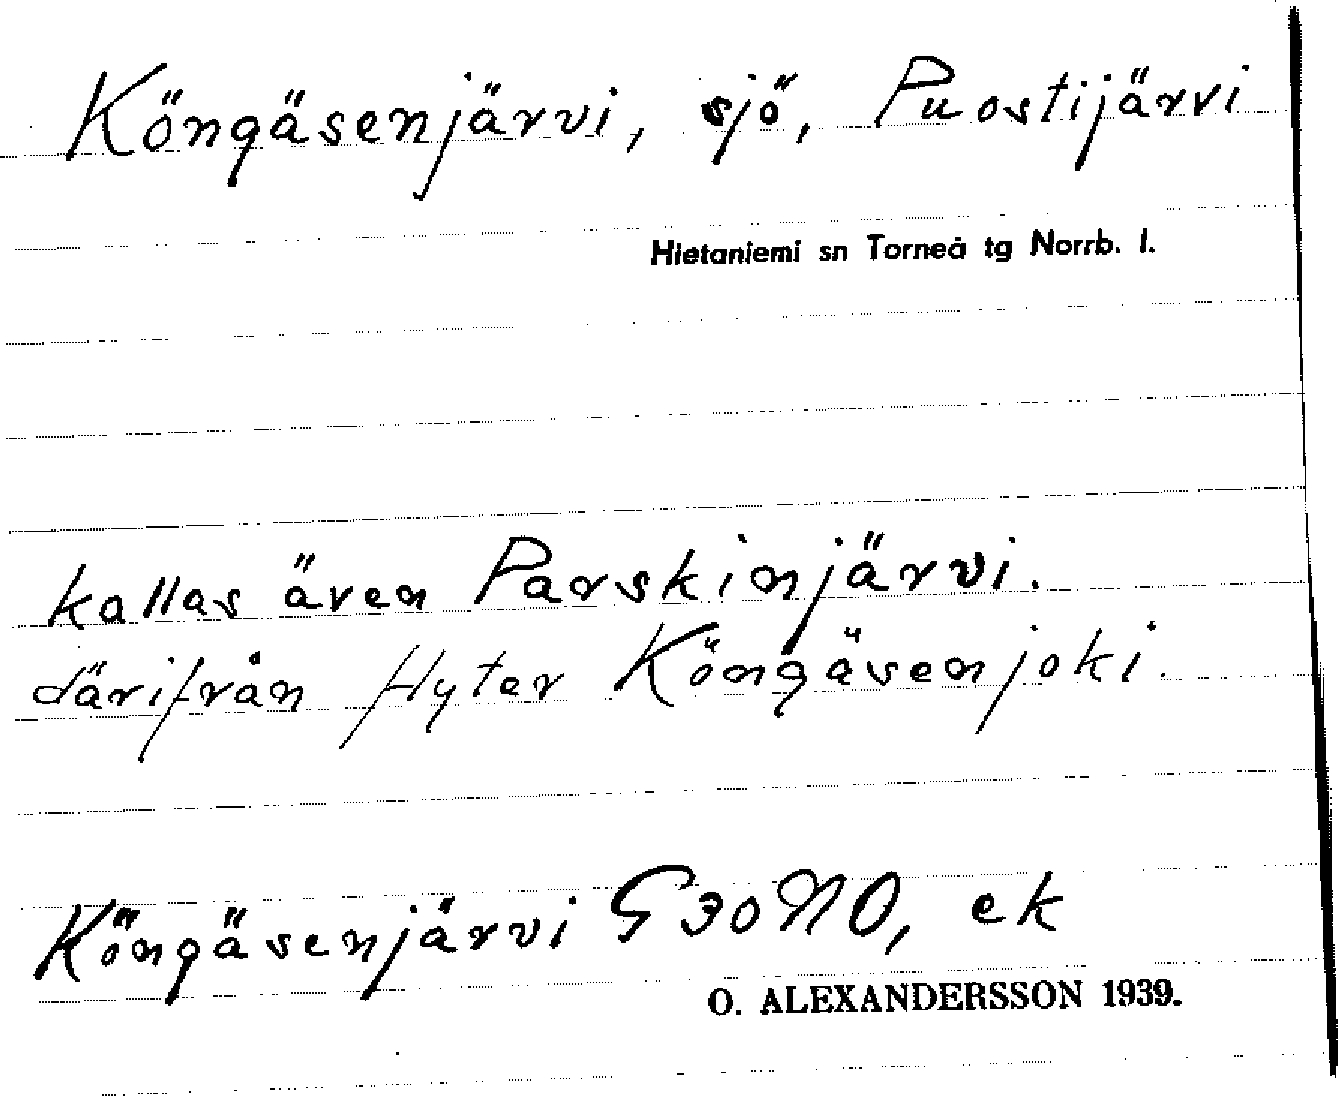 Köngäsenjärvi, sjö, Puostijärvi
Hietaniemi sn Torneå tg Norrb. l.
kallas även Parskinjärvi.
därifrån flyter Köngäsenjoki.
Köngäsenjärvi G 30 NO, ek
O. ALEXANDERSSON 1939.